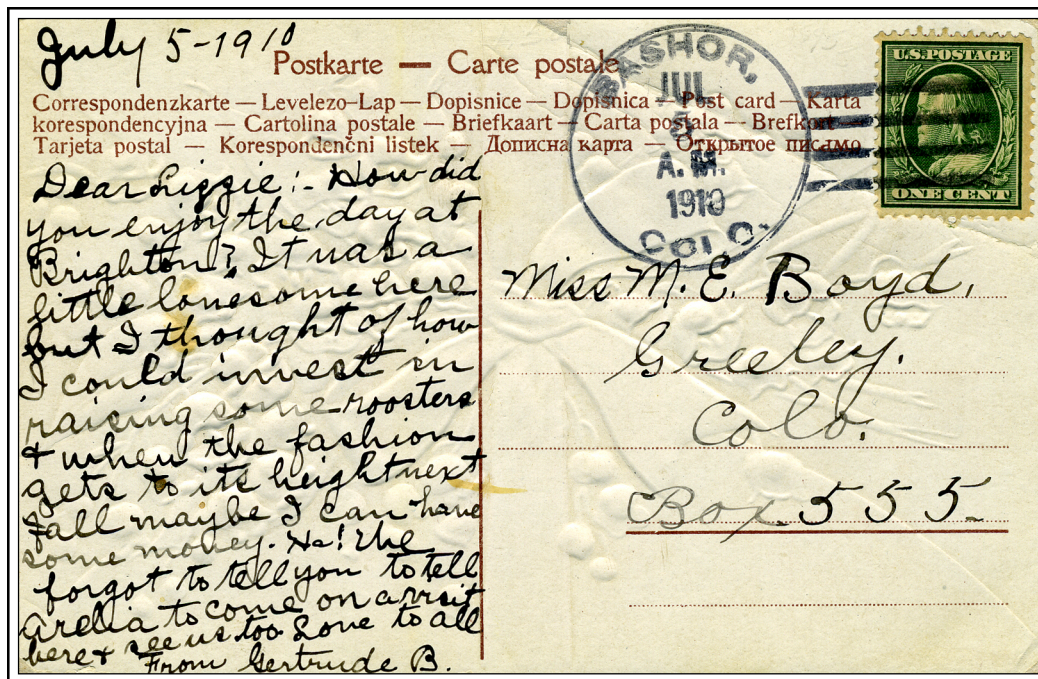 July 5-1910
Postkarte — Carte postale
Correspondenzkarte — Levelezo-Lap — Dopisnice — Dopisnica — Post card — Karta
korespondencyjna — Cartolina postale — Briefkaart — Carta postala — Brefkort
Tarjeta postal — Korespondenčni listek — Дописна карта — Открытое письмо
BASHOR,
JUL
5
A.M.
1910
COLO.
U.S. POSTAGE
ONE CENT
Dear Lizzie:- How did
you enjoy the day at
Brighton? It was a
little lonesome here
but I thought of how
I could invest in
raising some roosters
& when the fashion
gets to its height next
fall maybe I can have
some money. Ha! We
forgot to tell you to tell
to come on a visit
here & see us too Love to all
From Gertrude B.
Miss M. E. Boyd,
Greeley.
Colo.
Box 555-